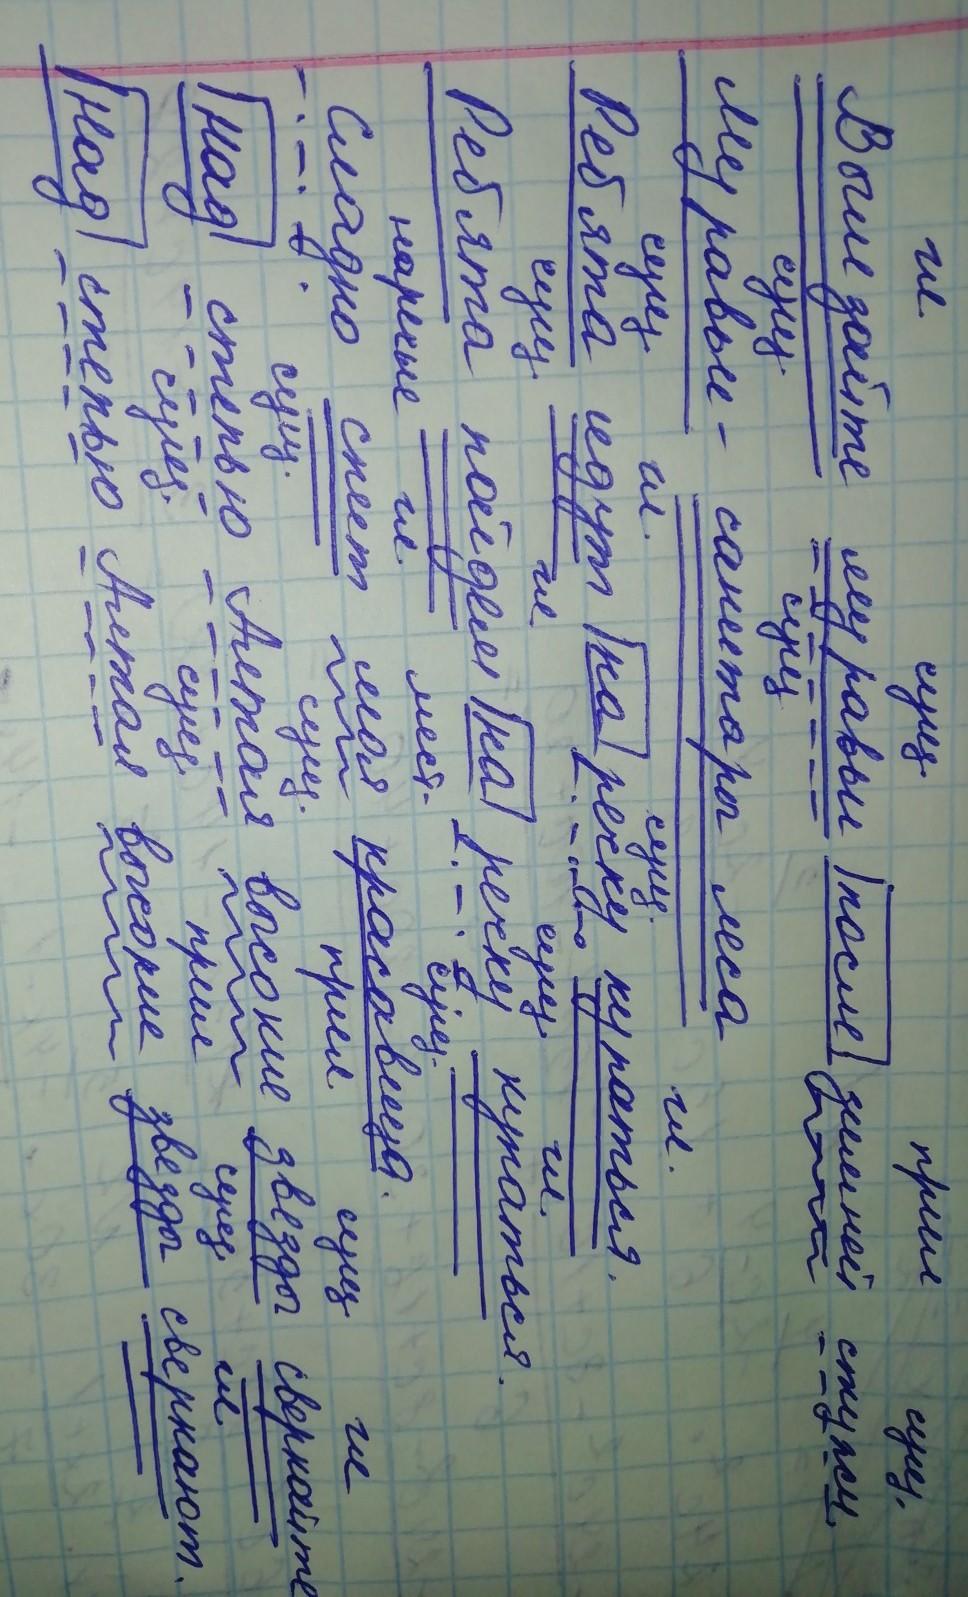 гл. сущ прил сущ.
Вылезайте муравьи после зимней стужи.
сущ сущ
Муравьи - санитары леса
сущ. гл. сущ. гл.
Ребята идут на речку купаться.
сущ. гл сущ. гл.
Ребята пойдем на речку купаться.
наречие гл. мест. сущ.
Сладко спет моя красавица.
сущ. сущ. прил. сущ гл
Над степью Алтая высокие звезды сверкайте
сущ. сущ. прил сущ гл
Над степью Алтая высокие звезды сверкают.